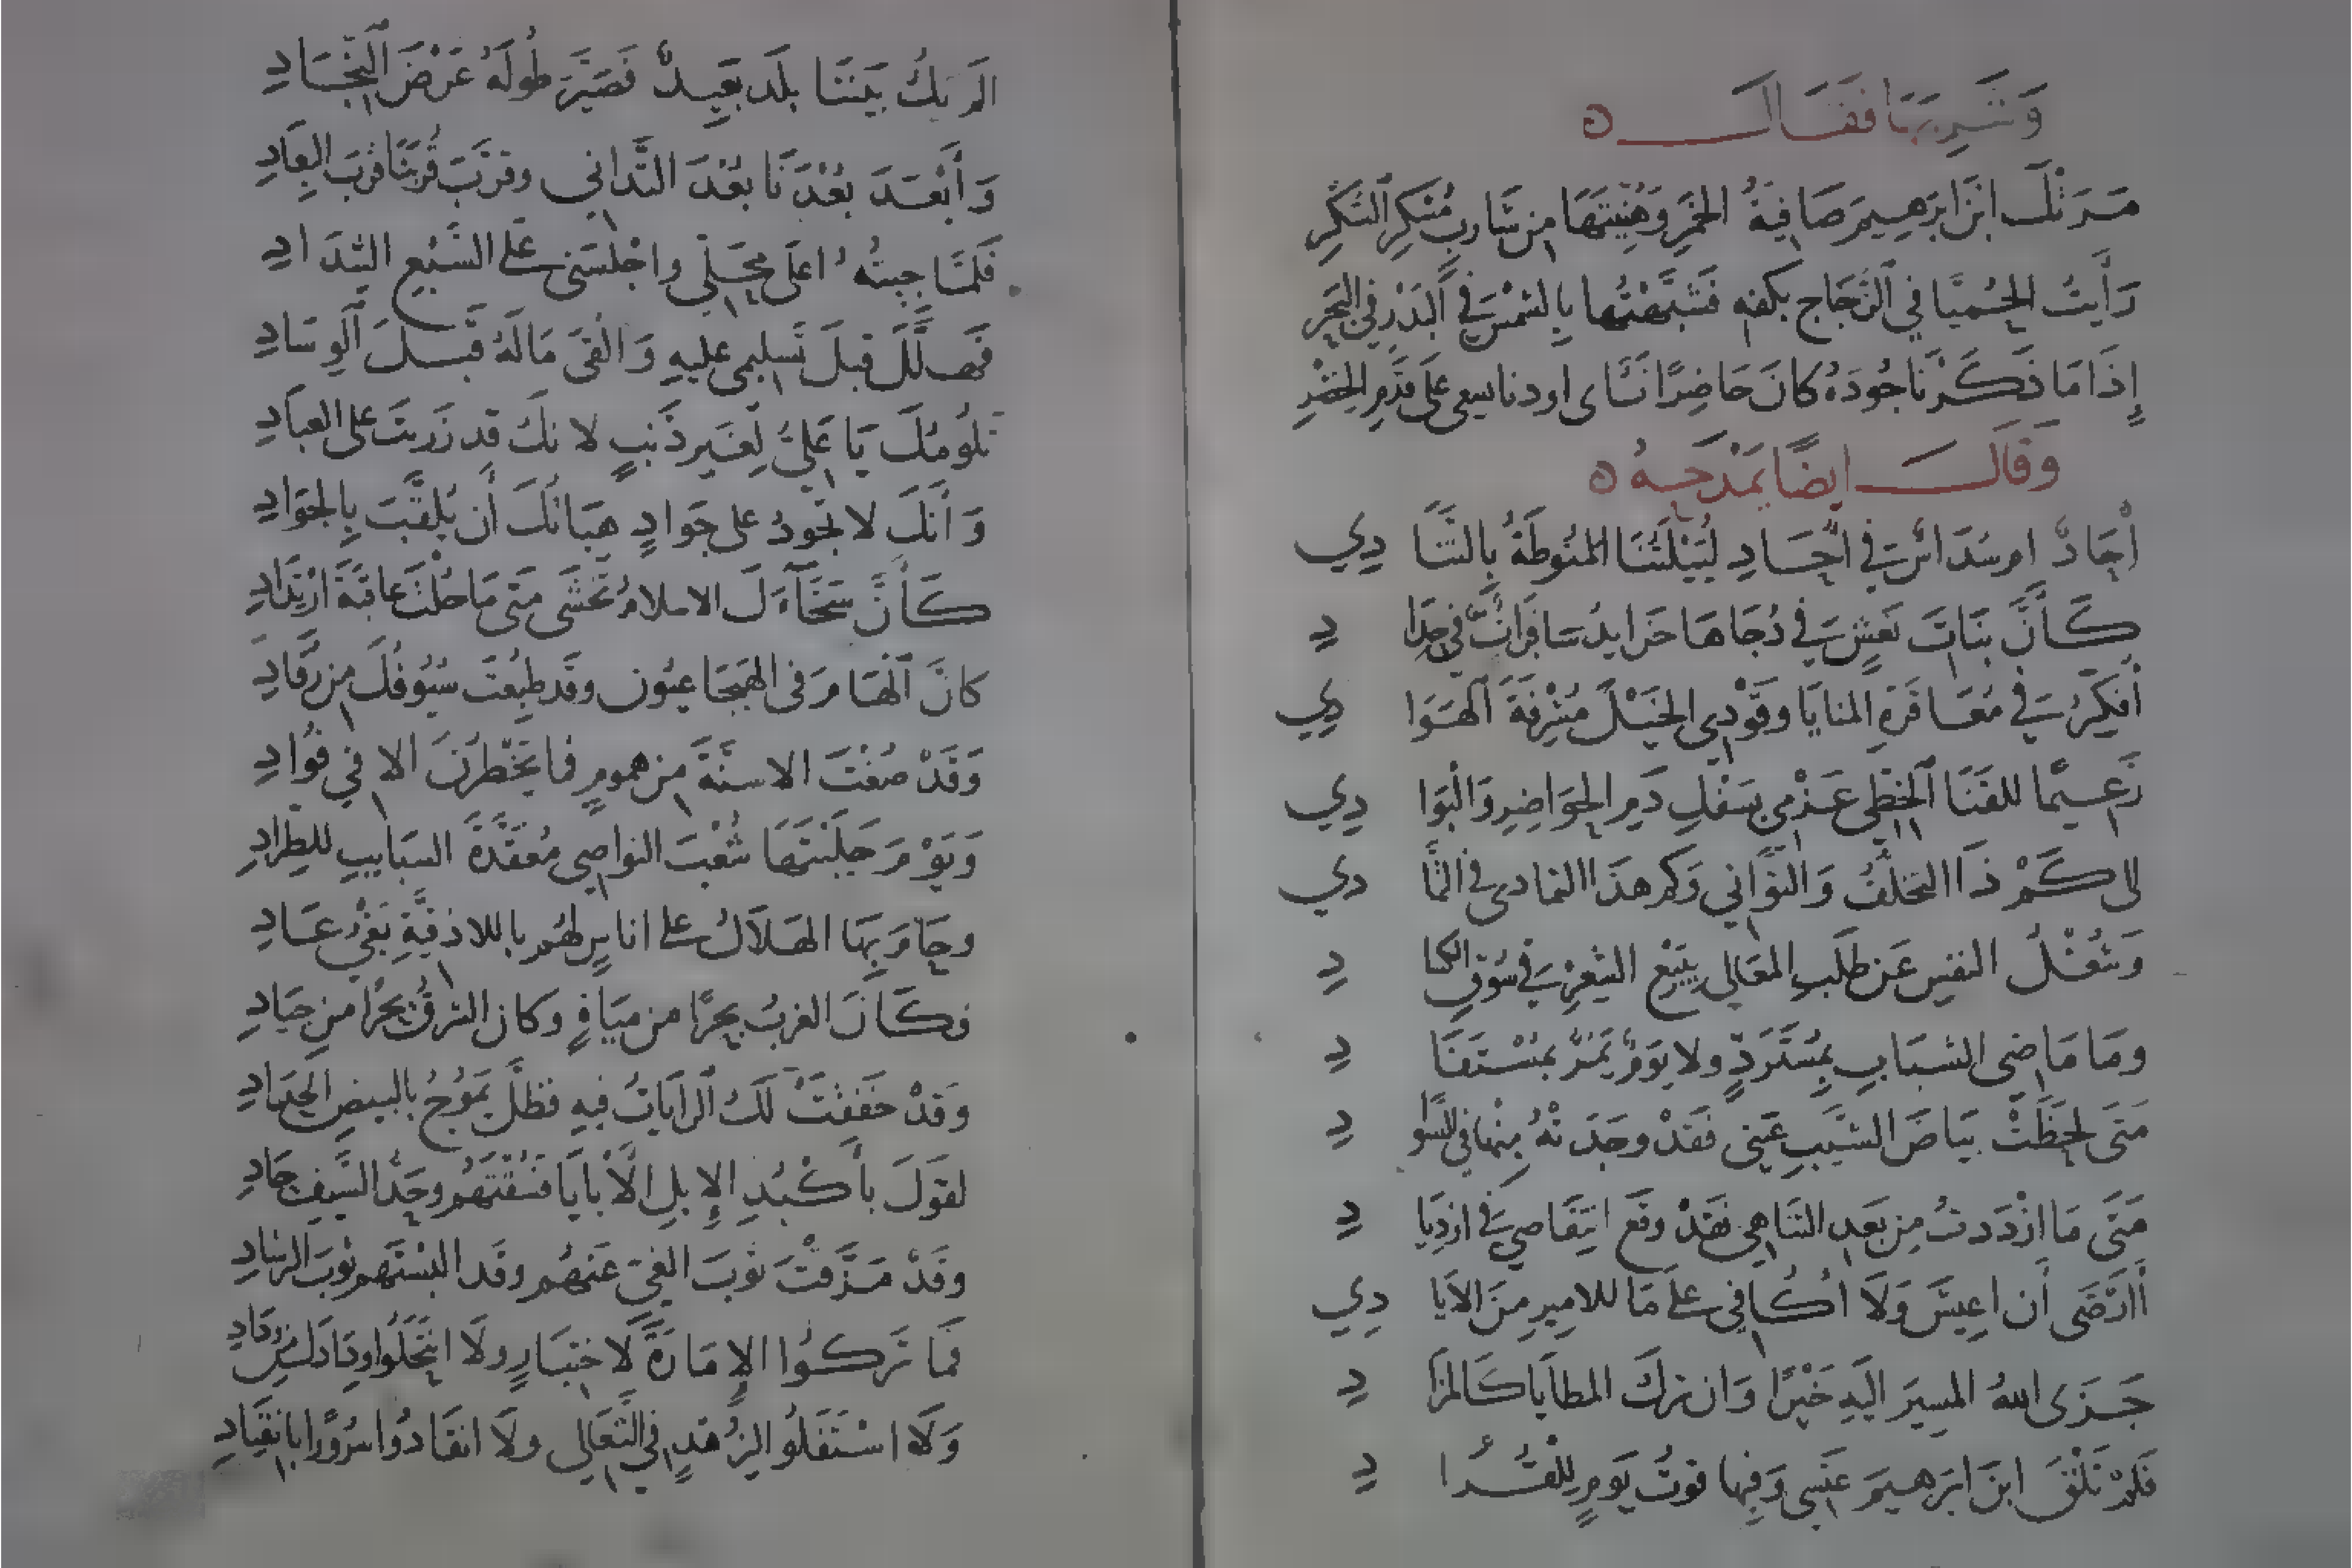 وَشَرِبَهَا فَقَالَ
مَرَتْكَ ابْنَ ابْرَهِيمَ صَافِيَةُ الخَمْرِ وَهُنِّيتَهَا مِن شَارِبٍ مُسْكِرِ السُّكْرِ
رَأَيْتُ الحُمَيَّا فِي الزُّجَاجِ بِكَفِّهِ فَشَبَّهْتُهَا بِالشَّمْسِ فِي الْبَدْرِ فِي البَحْرِ
إِذَا مَا ذَكَرْنَا جُودَهُ كَانَ حَاضِرًا نَأَى او دنا يسعى عَلَى قَدَمِ الخِضْرِ
وَقَالَ ايضًا يَمْدَحُهُ
أُحَادٌ ام سُدَاسٌ فِي أُحَادِ لُيَيْلَتُنَا المَنُوطَةُ بِالتَّنَادِي
كَأَنَّ بَنَاتِ نَعْشٍ فِي دُجَاهَا خَرَايِدُ سَافِرَاتٌ فِي حِدَادِ
أُفَكِّرُ فِي مُعَاقَرَةِ المنايَا وقَوْدِي الخَيْلَ مُشْرِفَةَ الْهَوَادِي
زَعِيمًا للقَنَا الْخَطِّي عَزْمِي بِسَفْكِ دَمِ الحَوَاضِرِ وَالْبَوَادِي
الى كَمْ ذَا التخَلُّفُ وَالتَّوَانِي وَكَمْ هَذَا التمادي فِي التَّمَادِي
وَشُغْلُ النفسِ عَن طَلَبِ المعَالِي بِبَيْعِ الشِّعْرِ فِي سُوقِ الكسادِ
ومَا مَاضِي الشَّبَابِ بِمُسْتَرَدٍّ ولا يَوْمٌ يَمُرُّ بِمُسْتَعَادِ
مَتَى لحَظَتْ بَيَاضَ الشَّيْبِ عَيْنِي فَقَدْ وجَدَتْهُ مِنْهَا فِي السَّوَادِ
مَتَى مَا ازْدَدتُ مِن بَعْدِ التنَاهِي فَقَدْ وقَعَ انتِقَاصِي فِي ازْدِيَادِ
أَأَرْضَى أَن اعِيشَ وَلَا أُكَافِي عَلَى مَا للامِيرِ مِنَ الأَيَادِي
جَزَى اللهُ المسِيرَ الَيْهِ خَيْرًا وَان تركَ المطَايَا كَالمَزَادِ
فَلَمْ تَلْقَ ابْنَ ابْرَهِيمَ عَنْسِي وَفِيهَا قوتُ يَومٍ لِلْقُرَادِ
الَم يَكُ بَيْنَنَا بَلَدٌ بَعِيدٌ فَصَيَّرَ طُولَهُ عَرْضَ النِّجَادِ
وَأَبْعَدَ بُعْدَنَا بُعْدَ التَّدَانِي وقَرَّبَ قُرْبَنَا قُرْبَ البِعَادِ
فَلَمَّا جِيتُهُ اعلَى مَحَلِّي واجْلَسَنِي عَلَى السَّبْعِ الشِّدَادِ
تَهَلَّلَ قبلَ تَسْلِيمِي عليهِ وَالْقَى مَالَهُ قَبْلَ الْوِسَادِ
نَلُومُكَ يَا عَلِيُّ لِغَيْرِ ذَنْبٍ لانكَ قَد زَرَيْتَ على العِبَادِ
وَأَنَّكَ لا تجُودُ على جَوَادٍ هِبَاتُكَ أَن يُلَقَّبَ بِالجَوَادِ
كَأَنَّ سَخَاءَكَ الاسلامُ تَخْشَى مَتَى مَا حُلْتَ عَاقِبَةَ ارْتِدَادِ
كَانَ الْهَامَ فِي الهَيْجَا عيُون وقَد طُبِعَتْ سُيُوفُكَ مِن رُقَادِ
وَقَدْ صُغْتَ الاسنَّةَ مِن همومٍ فما يَخْطُرْنَ الا فِي فُوَادِ
وَيَوْمَ جَلَبْتَهَا شُعْثَ النواصِي مُعَقَّدَةَ السَّبَايِبِ للطِّرَادِ
وحَامَ بِهَا الهَلَاكُ عَلَى اناسٍ لَهُم باللاذقيَّةِ بَغْيُ عَادِ
فكَانَ الغربُ بَحْرًا مِن مِيَاهٍ وكان الشرقُ بَحْرًا من جِيَادِ
وقَدْ خَفَقَتْ لَكَ الرَايَاتُ فيهِ فظَلَّ يَمُوجُ بالبيضِ الحِدَادِ
لقَوكَ بأَكْبُدِ الإِبِلِ الأَبَايَا فَسُقْتَهُم وحَدُّ السَّيفِ حَادِ
وقَدْ مَزَّقْتَ ثَوبَ الغَيِّ عَنهُم وقَد البَسْتَهُم ثوبَ الرشادِ
فَمَا تَرَكُوا الإِمَارَةَ لَاخْتِيَارٍ ولَا انتَحَلُوا وِدَادَكَ مِن وِدَادِ
وَلَا اسْتَفَلُوا لِزُهْدٍ فِي التَّعَالِي ولَا انقَادُوا سُرُورًا بِانْقِيَادِ